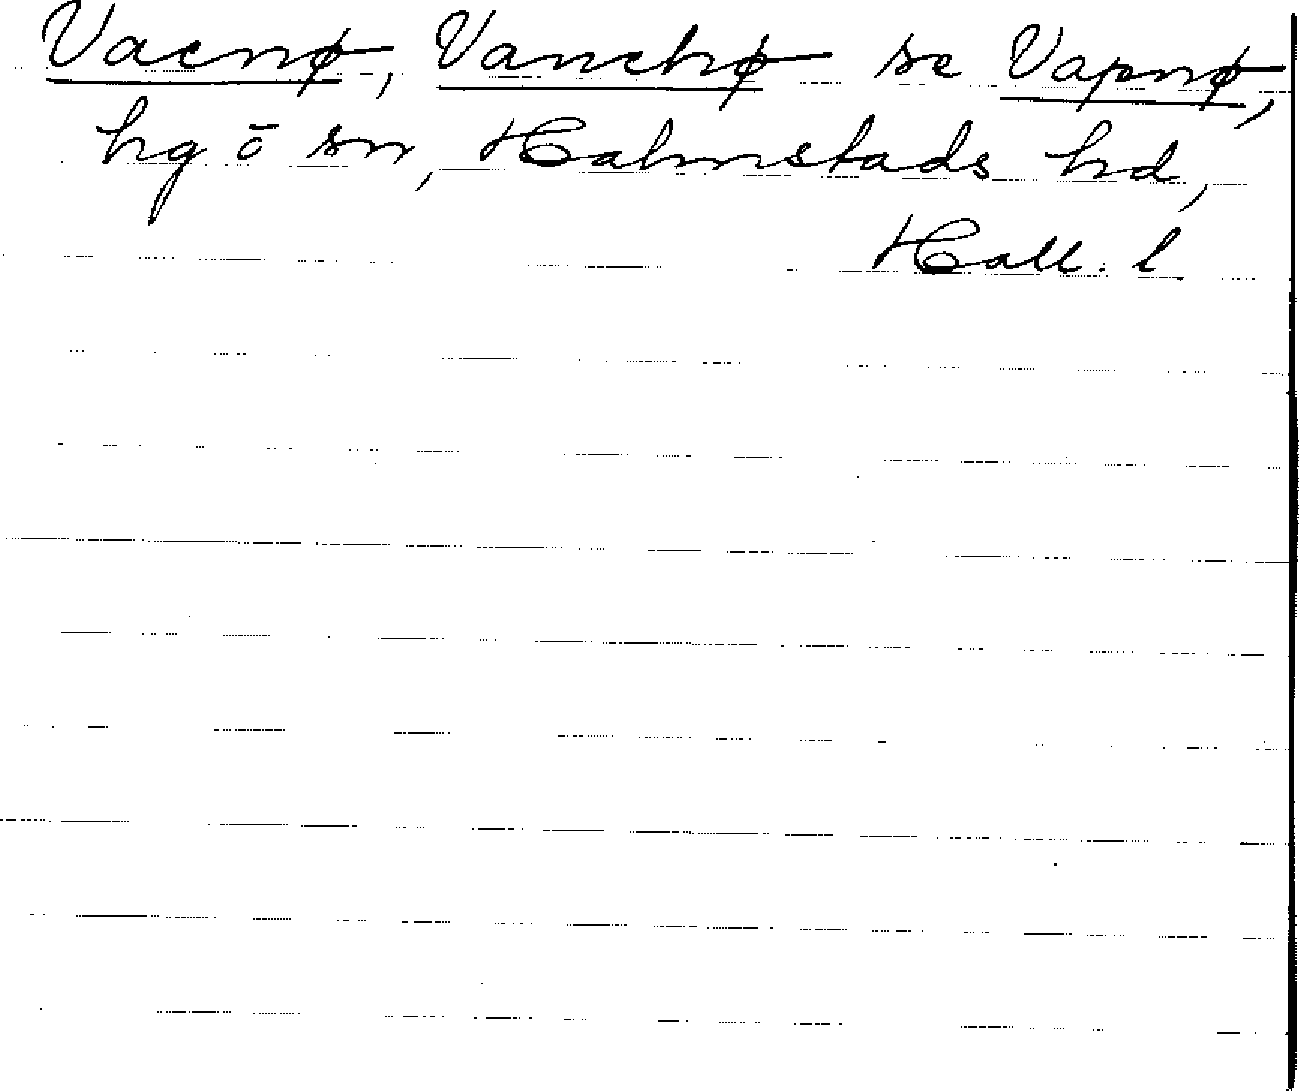 Vacnø, Vanchø se Vapnø,
hg ō sn, Halmstads hd,
Hall. l